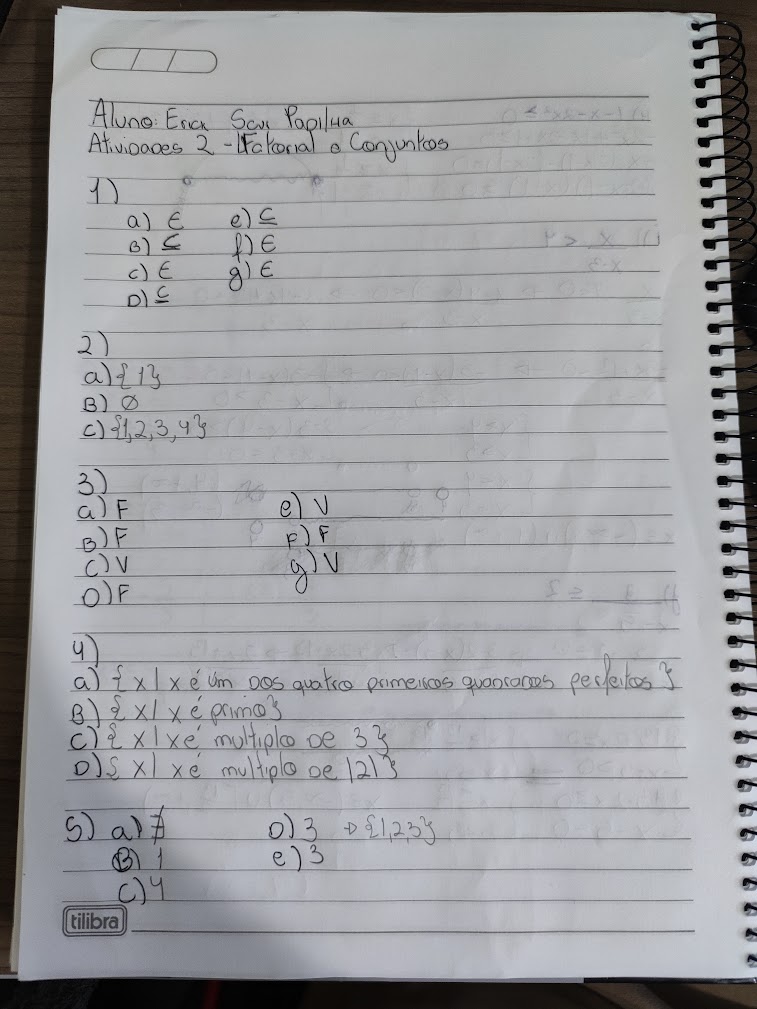 Aluno: Erick Savi Papilha
Atividades 2 - Fatorial e Conjuntos
1)
a) ∈ e) ⊆
B) ⊆ f) ∈
c) ∈ g) ∈
D) ⊆
2)
a) {1}
B) ∅
c) {1,2,3,4}
3)
a) F e) V
B) F F) F
C) V g) V
D) F
4)
a) { x | x é um dos quatro primeiros quadrados perfeitos }
B) { x | x é primo}
C) { x | x é multiplo de 3 }
D) { x | x é multiplo de |2| }
5) a) ∄ D) 3 → {1,2,3}
B) 1 e) 3
C) 4
tilibra